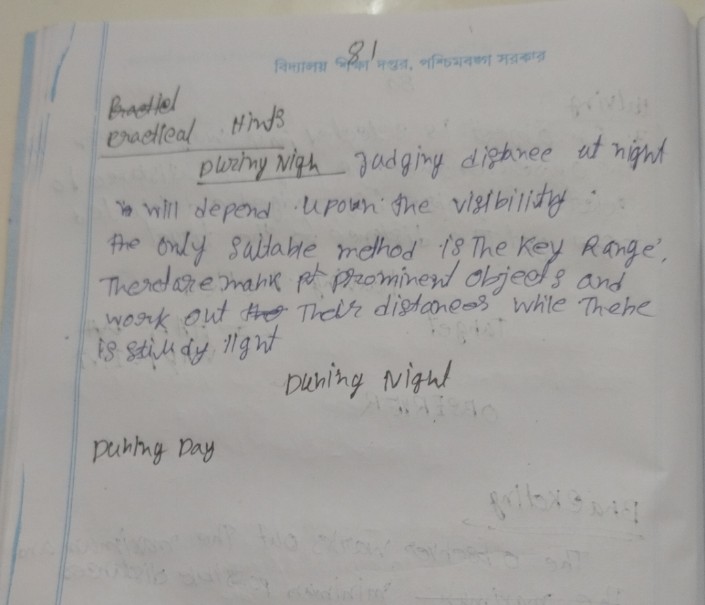 81
বিদ্যালয় শিক্ষা দপ্তর, পশ্চিমবঙ্গ সরকার
Practical Hints
During Nigh Judging distance at night
will depend upoun the visibility
the only suitable method is The Key Range,
Therefore mark prominent objects and
work out Their distances while There
is still day light
During Night
During Day